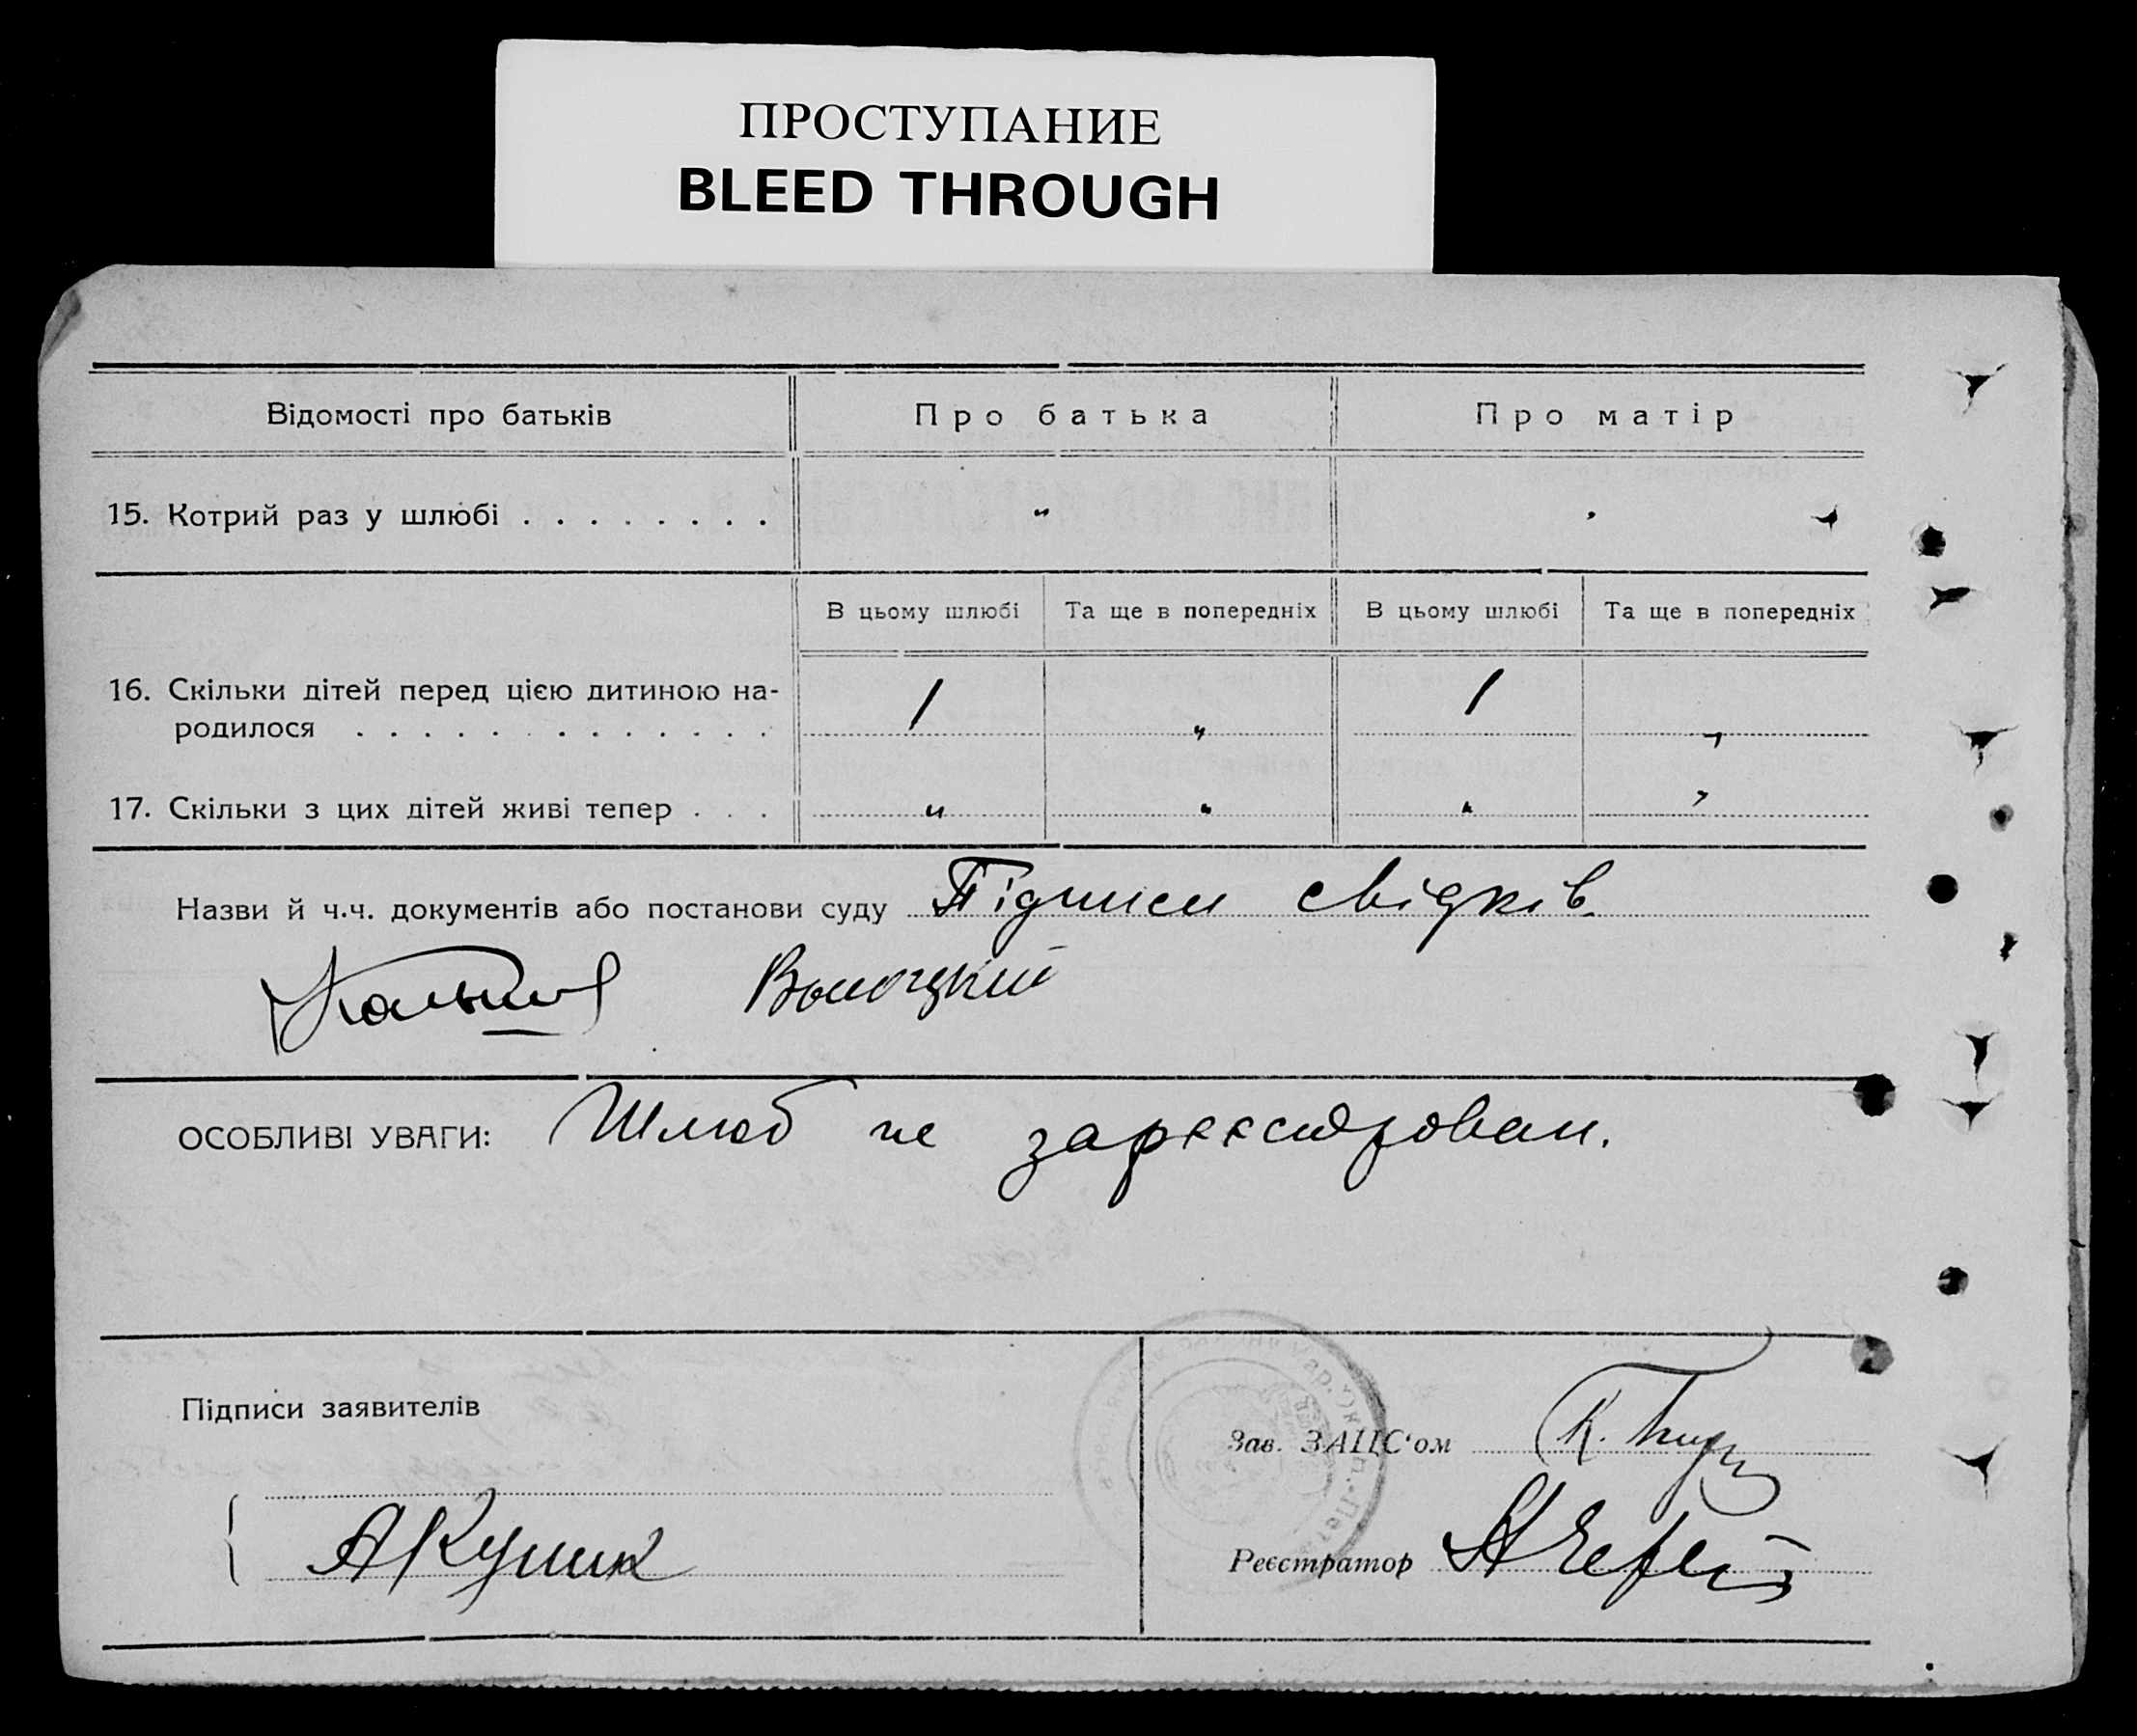 ПРОСТУПАНИЕ
BLEED THROUGH
Відомості про батьків Про батька Про матір
15. Котрий раз у шлюбі . . . . . . . . " "
В цьому шлюбі Та ще в попередніх В цьому шлюбі Та ще в попередніх
16. Скільки дітей перед цією дитиною на-
родилося . . . . . . . . . . . . . 1 " 1 "
17. Скільки з цих дітей живі тепер . . . " " " "
Назви й ч.ч. документів або постанови суду Підписи свідків.
Висоцкий
ОСОБЛИВІ УВАГИ: Шлюб не зареєстрован.
Підписи заявителів
Зав. ЗАЦС'ом
АКушик
Реєстратор